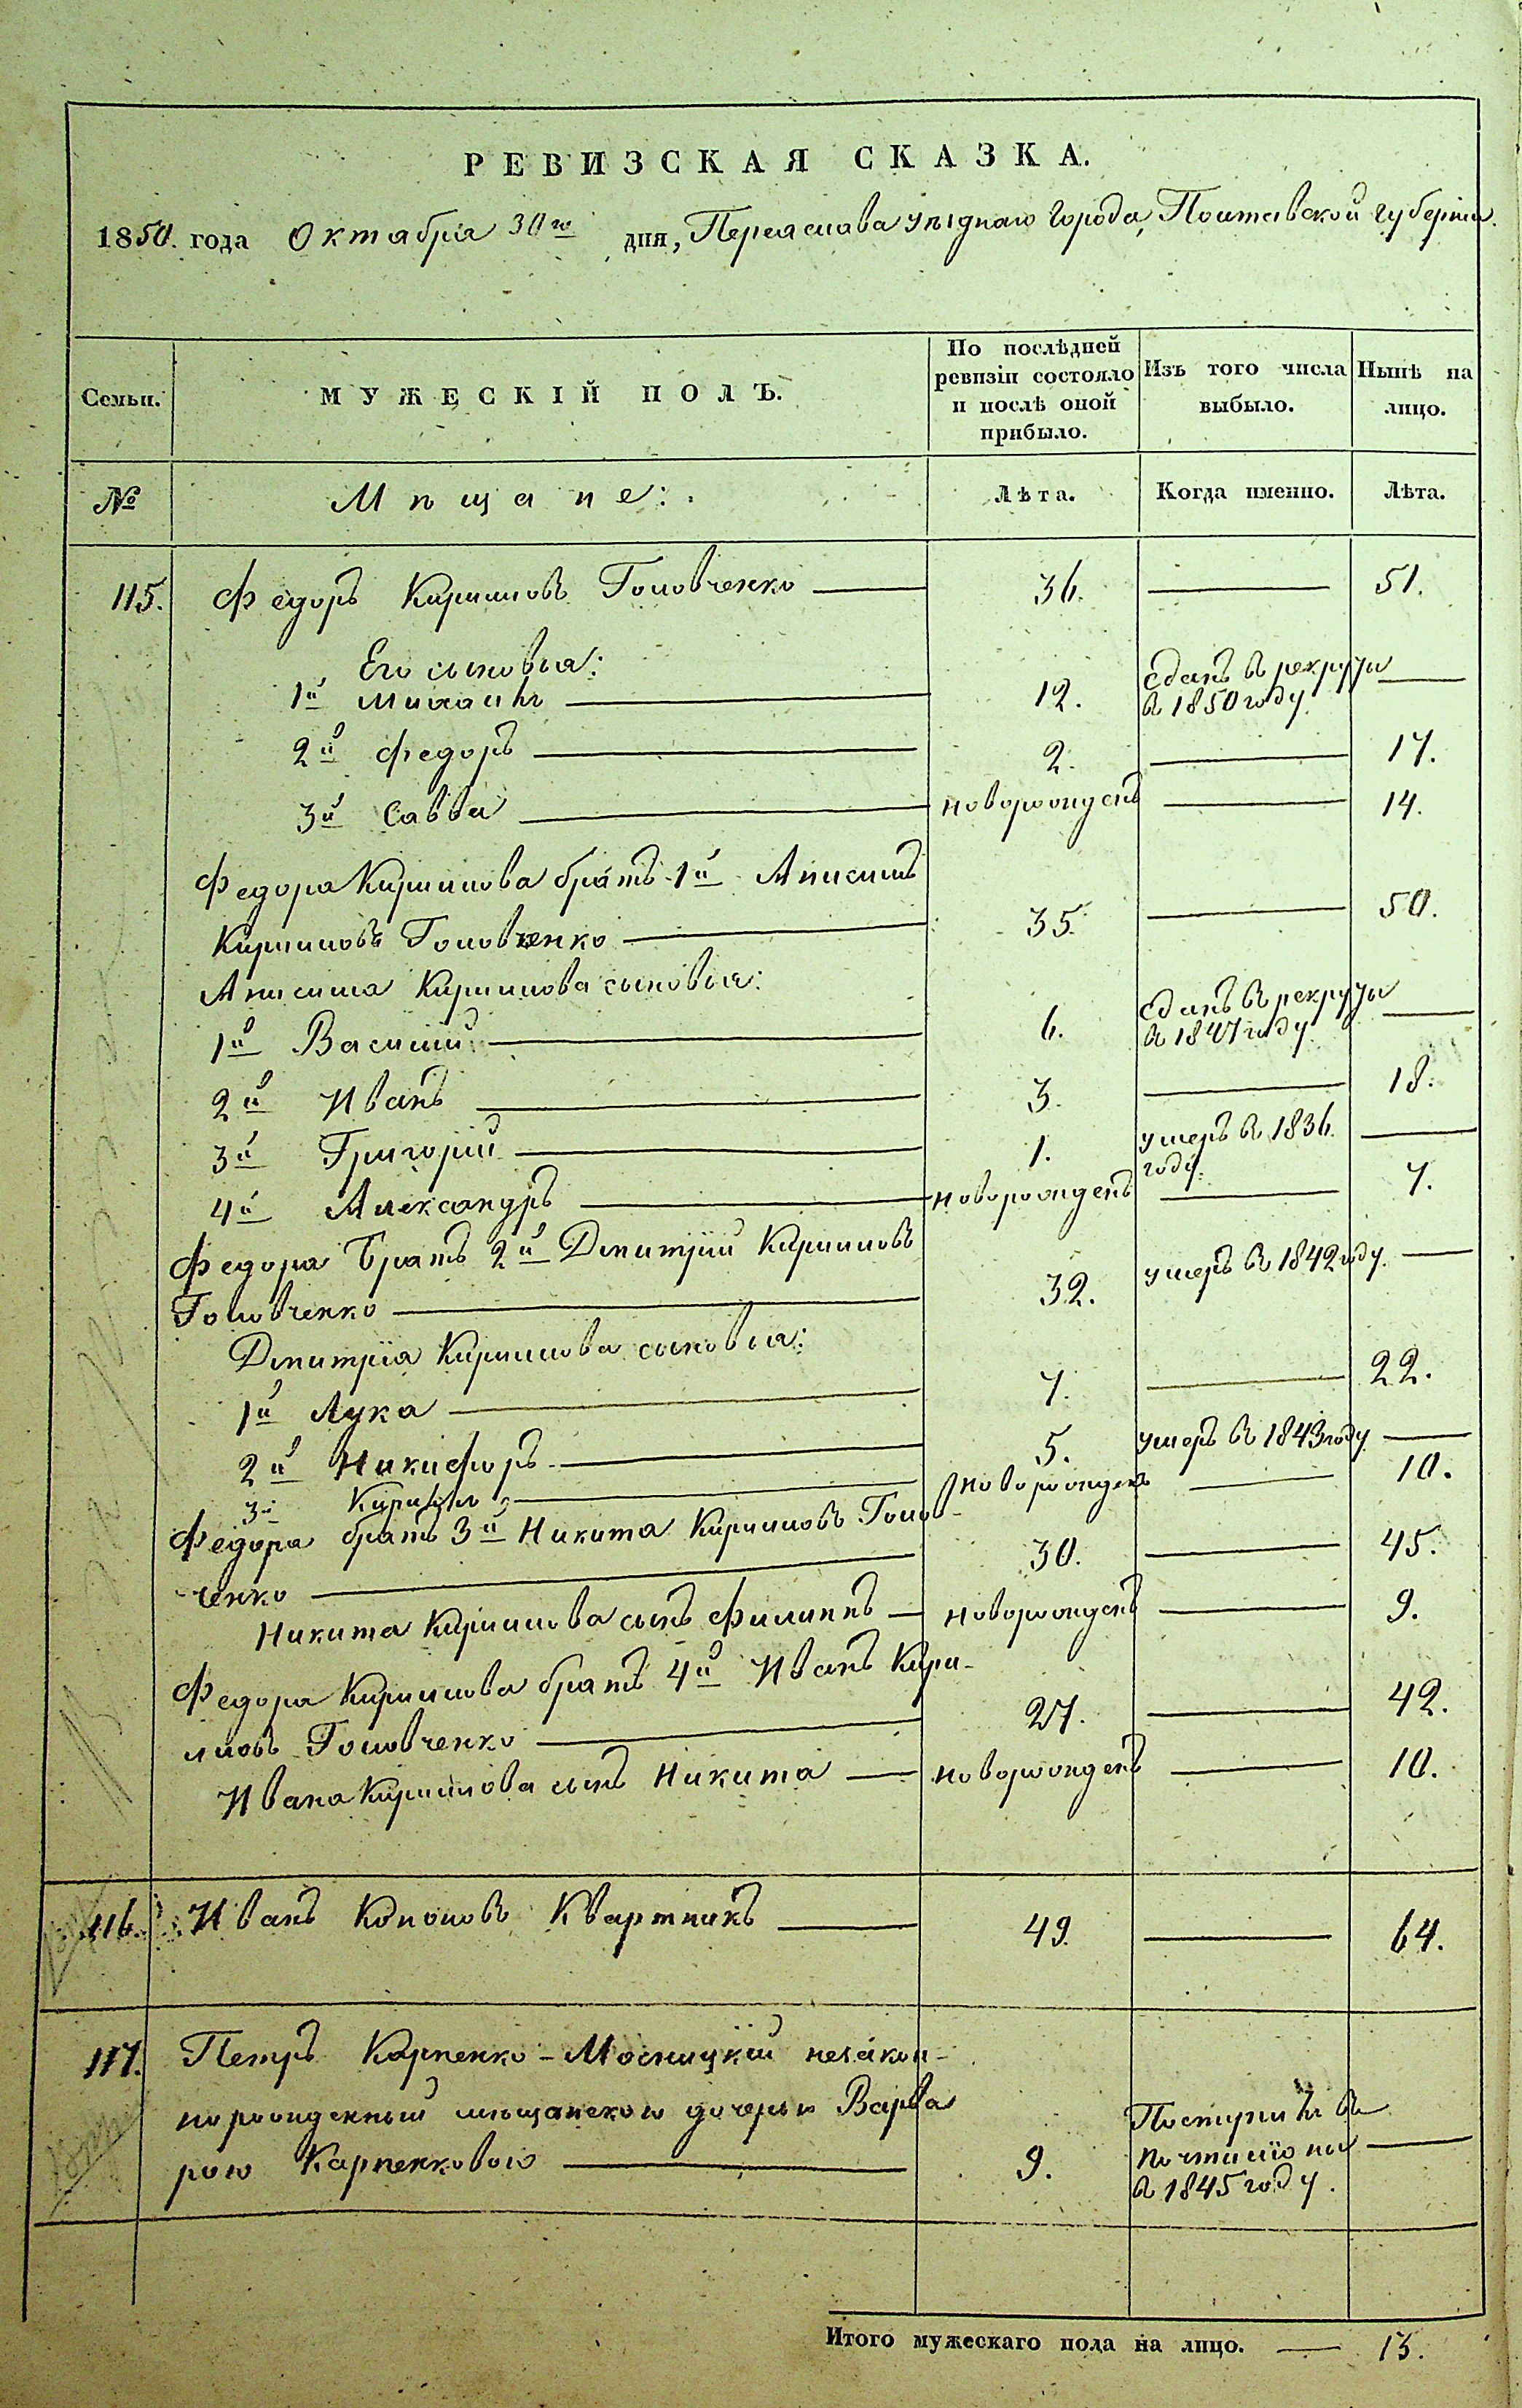 РЕВИЗСКАЯ СКАЗКА.
1850. года Октабря 30го дня, Переяслава уѣзднаго города, Полтавской губерніи.
Семьи. МУЖЕСКІЙ ПОЛЪ. По послѣдней ревизіи состояло и послѣ оной прибыло. Изъ того числа выбыло. Нынѣ на лицо.
№ Мѣщане: Лѣта. Когда именно. Лѣта.
115. Федоръ Кириловъ Головченко — 36. — 51.
Его сыновья:
1й Михаилъ — 12. Сданъ въ рекруты в 1850 году. —
2й Федоръ — 2. — 17.
3й Савва — новорожденъ — 14.
Федора Кирилова братъ 1й Анисимъ
Кириловъ Головченко — 35. — 50.
Анисима Кирилова сыновья:
1й Василий — 6. Сданъ въ рекруты в 1847 году. —
2й Иванъ — 3. — 18.
3й Григорий — 1. умеръ в 1836. году. —
4й Александръ — новорожденъ — 7.
Федора Братъ 2й Дмитрий Кириловъ
Головченко — 32. умеръ в 1842 году. —
Дмитрія Кирилова сыновья:
1й Лука — 7. — 22.
2й Никифоръ — 5. умеръ в 1843 году —
3й Кирилъ — новорожденъ — 10.
Федора братъ 3й Никита Кириловъ Голов-
ченко — 30. — 45.
Никита Кирилова сынъ Филиппъ — новорожденъ — 9.
Федора Кирилова братъ 4й Иванъ Кири-
ловъ Головченко — 27. — 42.
Ивана Кирилова сынъ Никита — новорожденъ — 10.
116. Иванъ Кононовъ Квартникъ — 49. — 64.
117. Петръ Карпенко-Мосницкій незакон-
но рожденный мѣщанскою дочерью Варва
рою Карпенковою — 9. Поступилъ в почталіоны в 1845 году. —
Итого мужескаго пола на лицо. — 13.